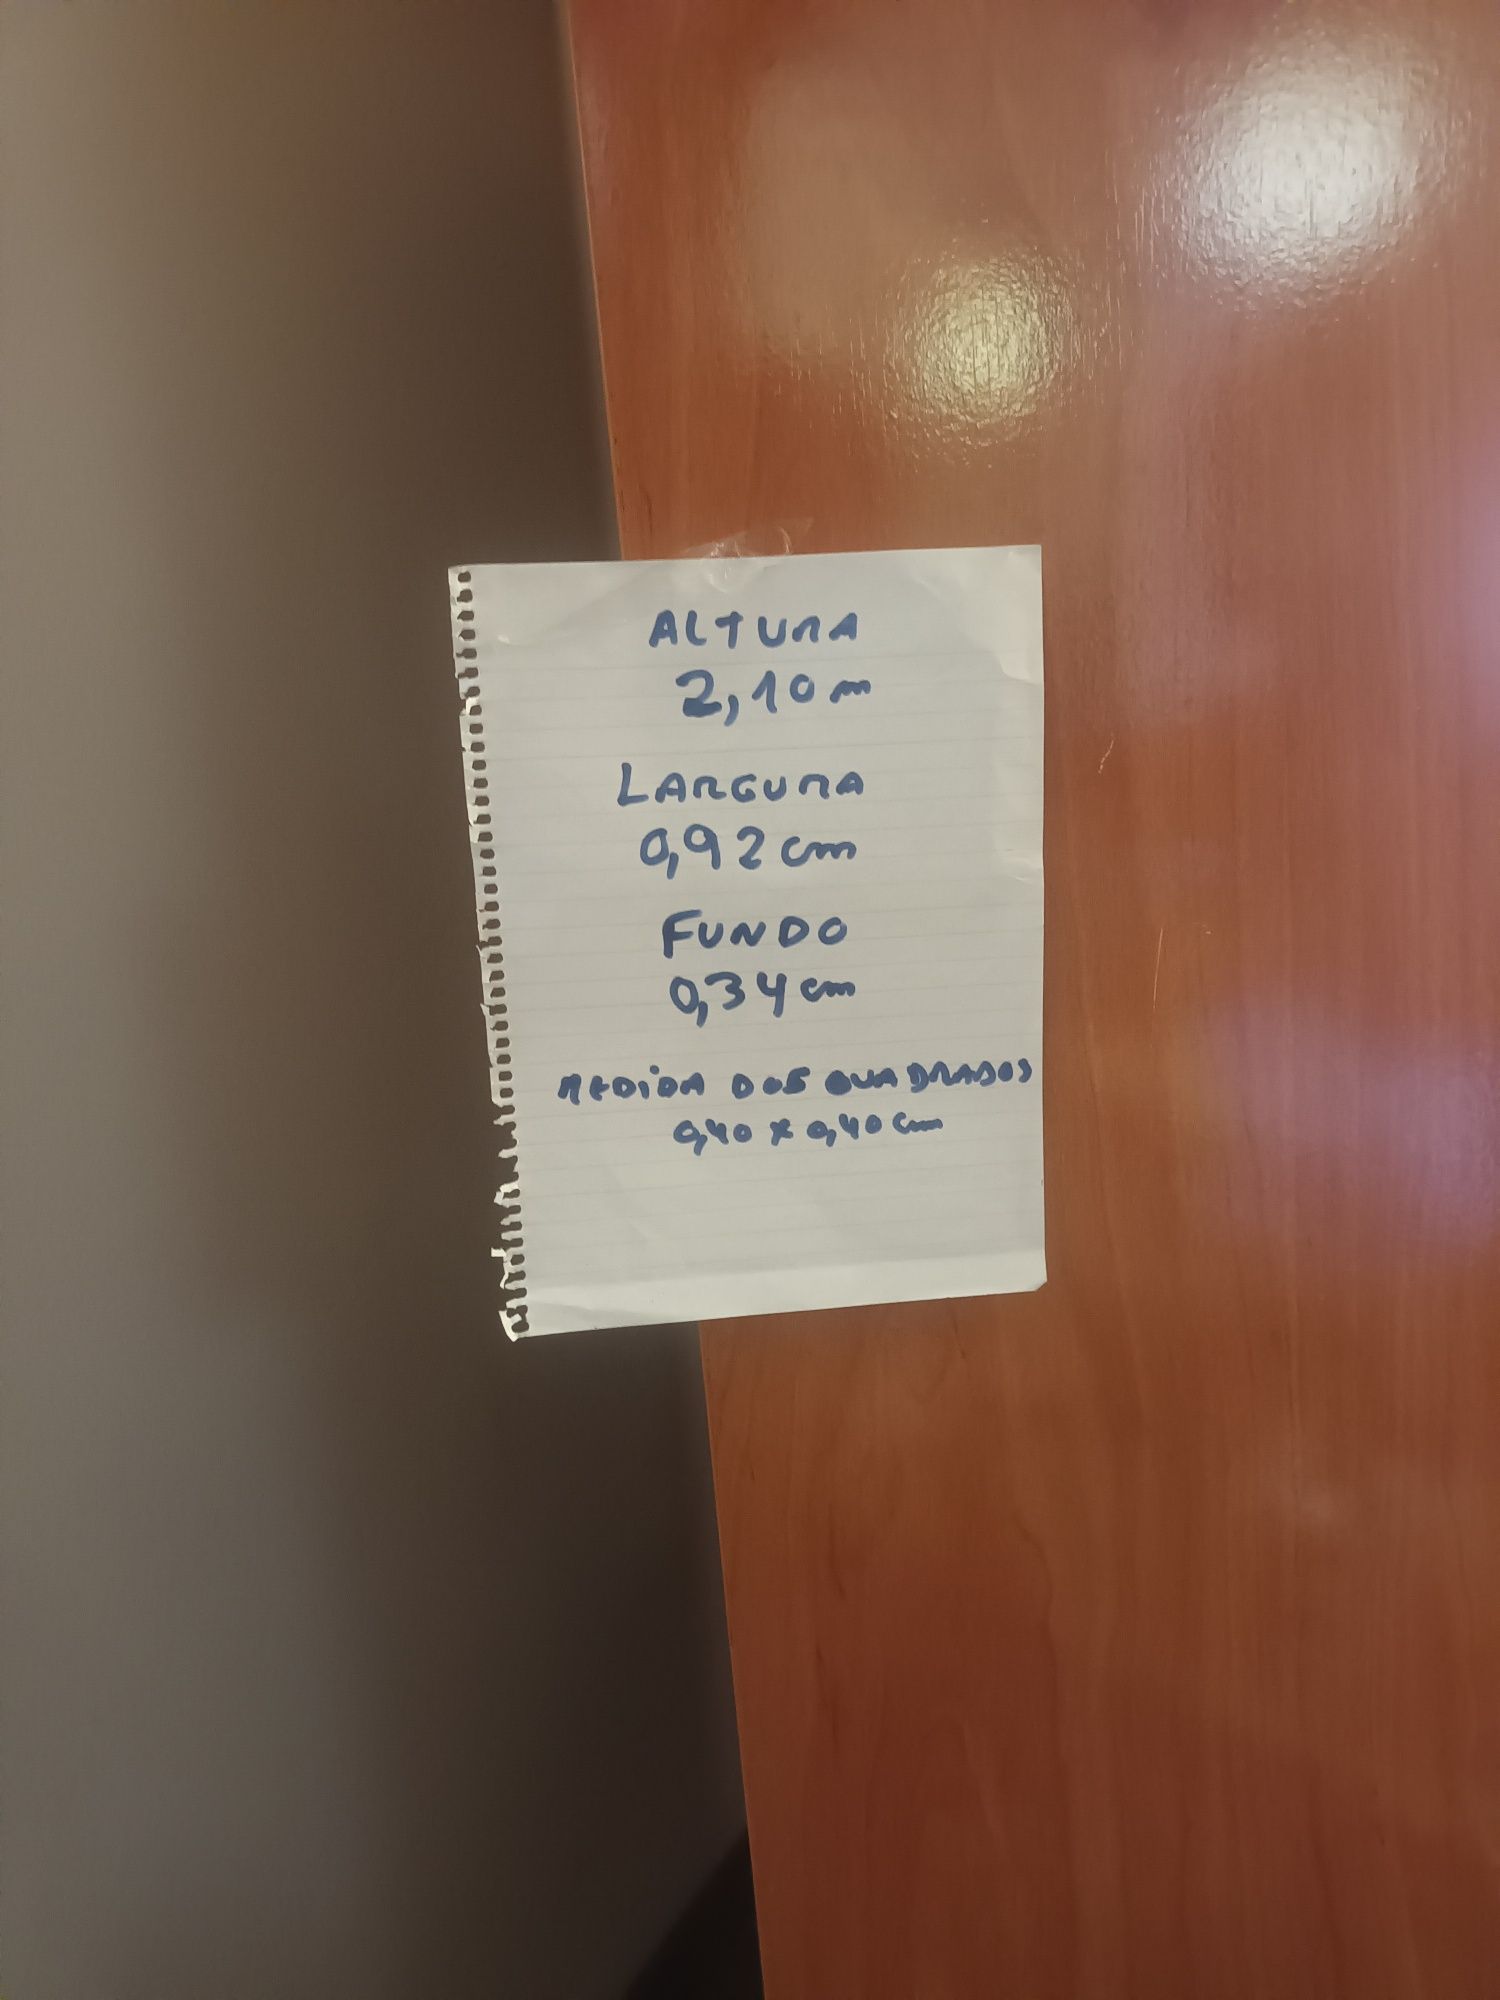 ALTURA
2,10 m
LARGURA
0,92 cm
FUNDO
0,34 cm
MEDIDA DOS QUADRADOS
0,40 x 0,40 cm